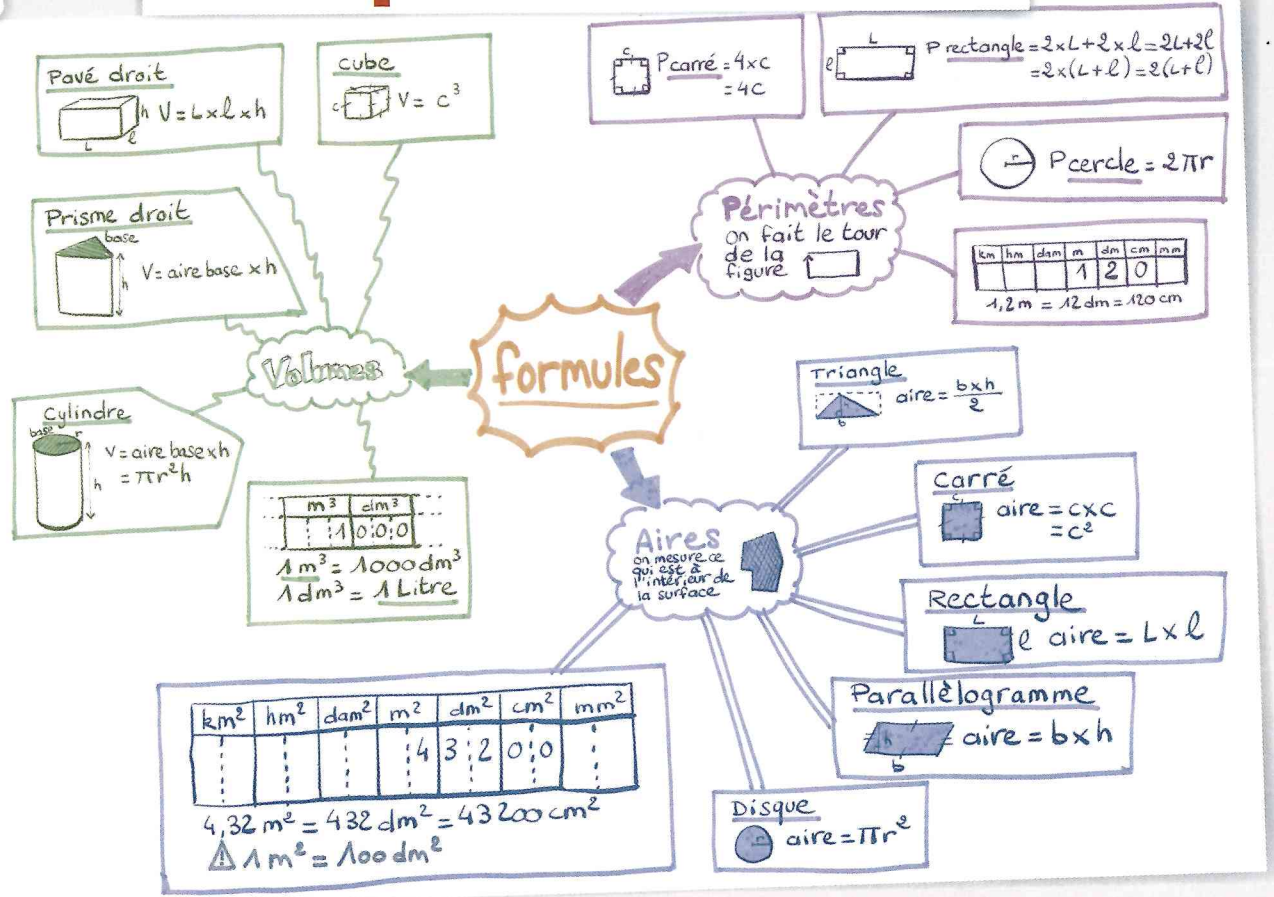 formules
Volumes
Pavé droit
h
L
l
V = L x l x h
cube
c
V = c³
Prisme droit
base
h
V = aire base x h
Cylindre
base
r
h
V = aire base x h
= πr²h
m³ dm³
1 0 0 0
1 m³ = 1000 dm³
1 dm³ = 1 Litre
Périmètres
on fait le tour
de la
figure
c
P carré = 4 x c
= 4c
L
l
P rectangle = 2 x L + 2 x l = 2L + 2l
= 2 x (L + l) = 2(L + l)
r
P cercle = 2πr
km hm dam m dm cm mm
1 2 0
1,2 m = 12 dm = 120 cm
Aires
on mesure ce
qui est à
l'intérieur de
la surface
Triangle
h
b
aire = b x h
2
Carré
c
aire = c x c
= c²
Rectangle
L
l
aire = L x l
Parallèlogramme
h
b
aire = b x h
Disque
r
aire = πr²
km² hm² dam² m² dm² cm² mm²
4 3 2 0 0
4,32 m² = 432 dm² = 43200 cm²
⚠ 1 m² = 100 dm²